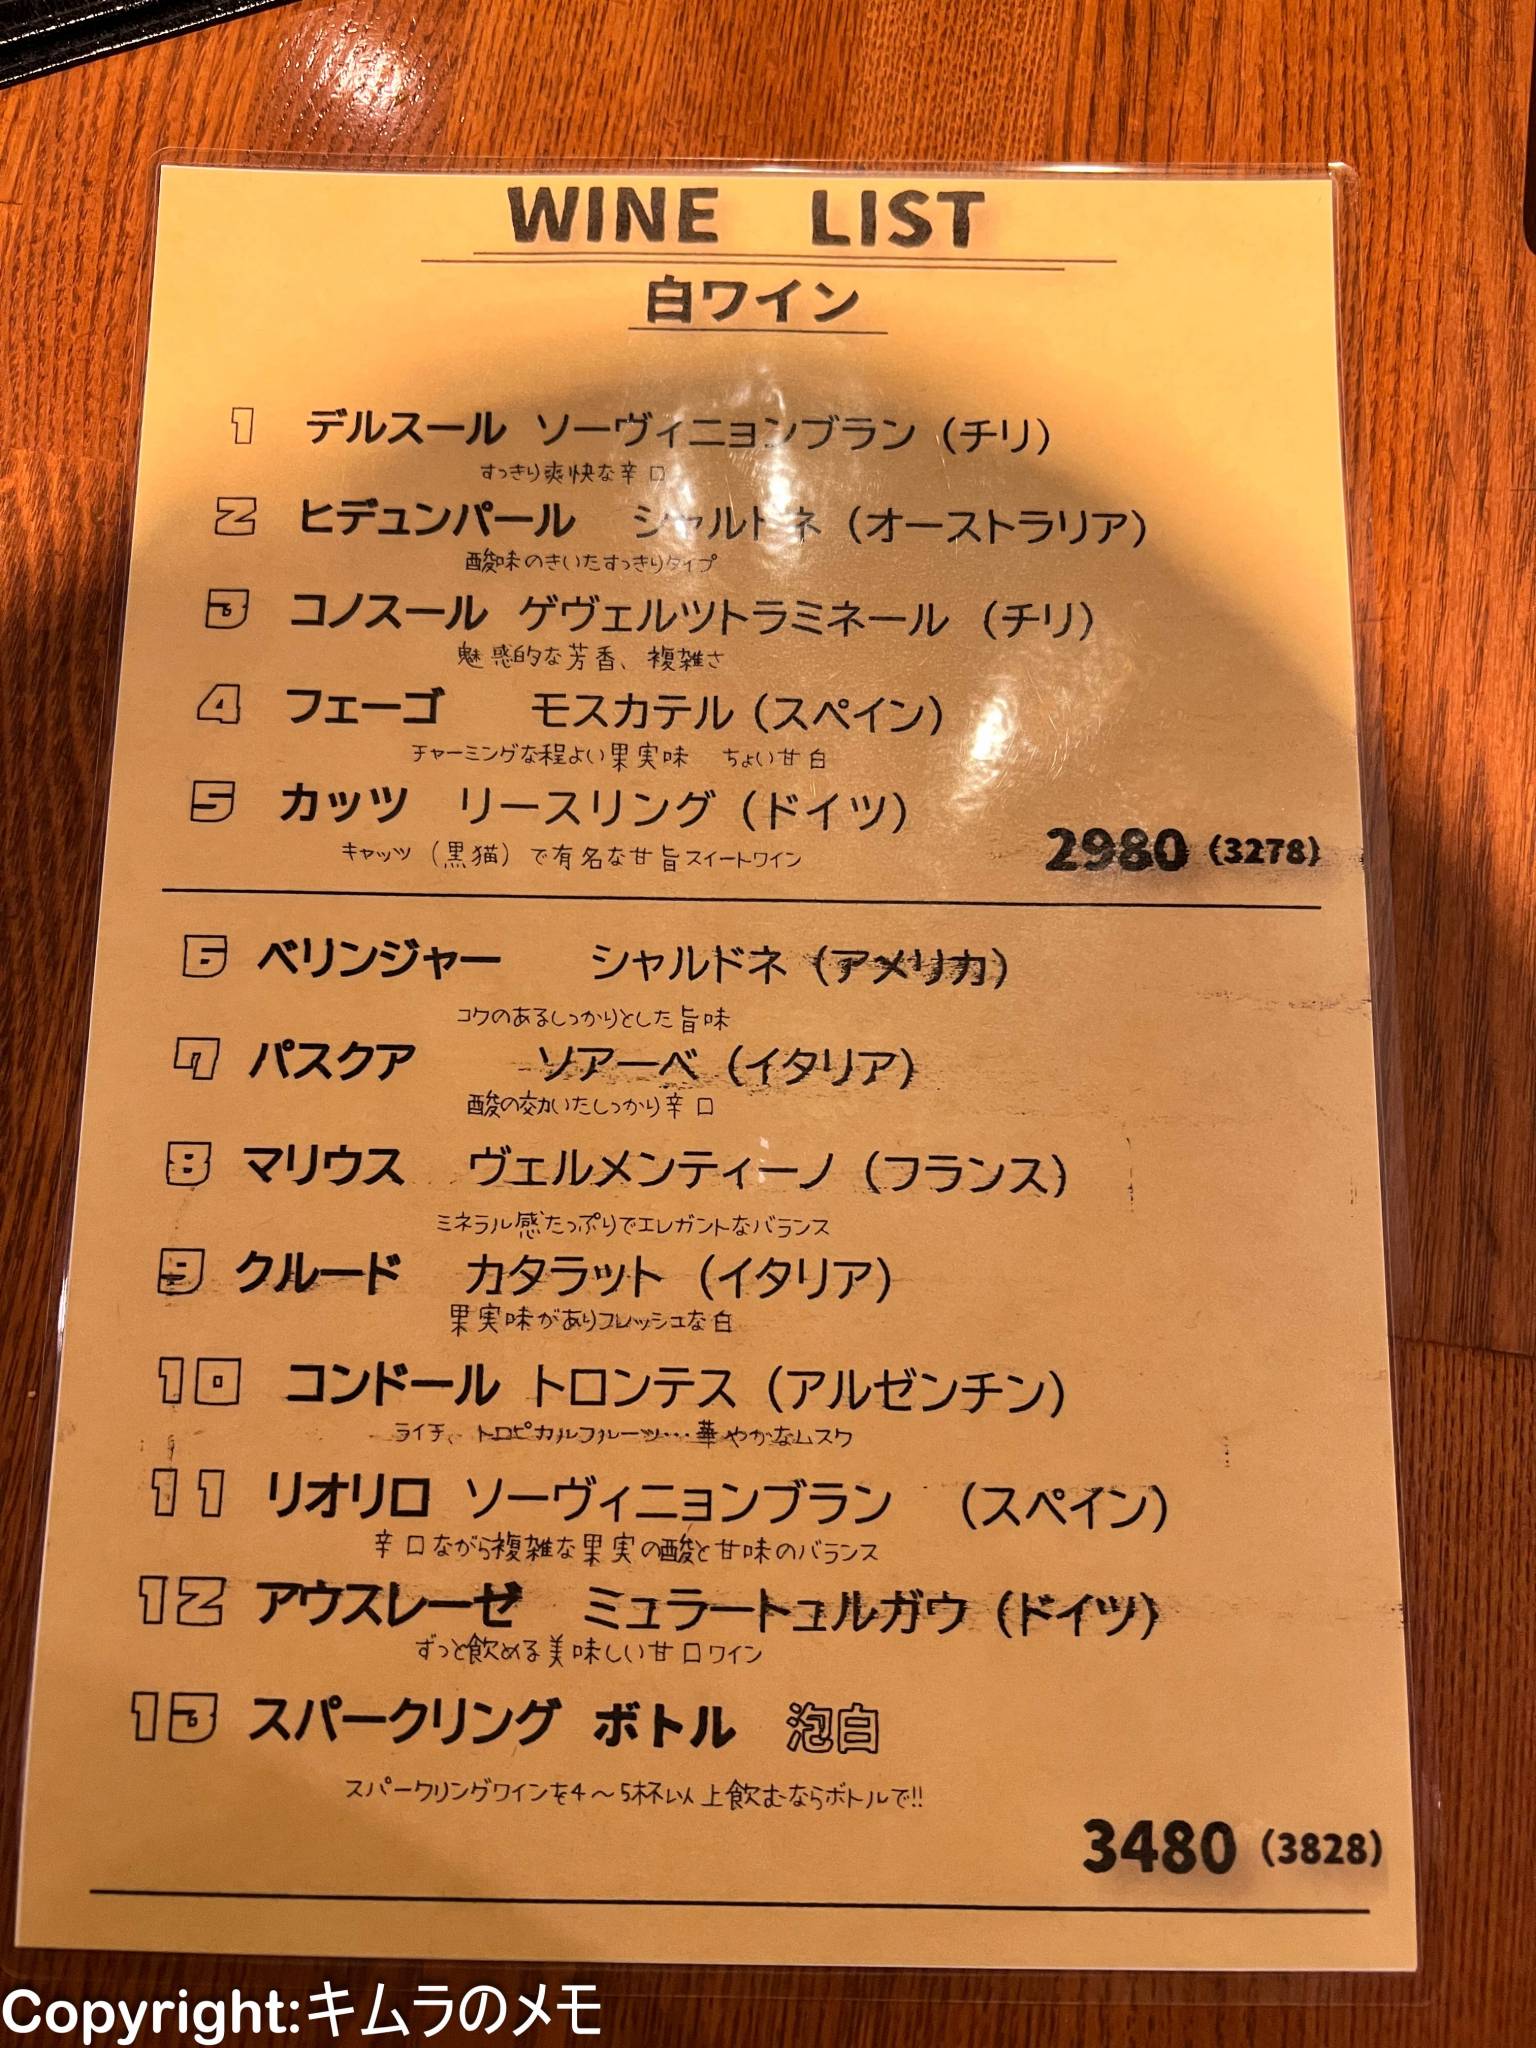 WINE LIST
白ワイン
1 デルスール ソーヴィニョンブラン (チリ)
すっきり爽快な辛口
2 ヒデュンパール シャルドネ (オーストラリア)
酸味のきいたすっきりタイプ
3 コノスール ゲヴェルツトラミネール (チリ)
魅惑的な芳香、複雑さ
4 フェーゴ モスカテル (スペイン)
チャーミングな程よい果実味 ちょい甘白
5 カッツ リースリング (ドイツ)
キャッツ (黒猫) で有名な甘旨スイートワイン
2980 (3278)
6 ベリンジャー シャルドネ (アメリカ)
コクのあるしっかりとした旨味
7 パスクア ソアーベ (イタリア)
酸の効いたしっかり辛口
8 マリウス ヴェルメンティーノ (フランス)
ミネラル感たっぷりでエレガントなバランス
9 クルード カタラット (イタリア)
果実味がありフレッシュな白
10 コンドール トロンテス (アルゼンチン)
ライチ、トロピカルフルーツ…華やかなムスク
11 リオリロ ソーヴィニョンブラン (スペイン)
辛口ながら複雑な果実の酸と甘味のバランス
12 アウスレーゼ ミュラートュルガウ (ドイツ)
ずっと飲める美味しい甘口ワイン
13 スパークリング ボトル 泡白
スパークリングワインを4～5杯以上飲むならボトルで!!
3480 (3828)
Copyright:キムラのメモ